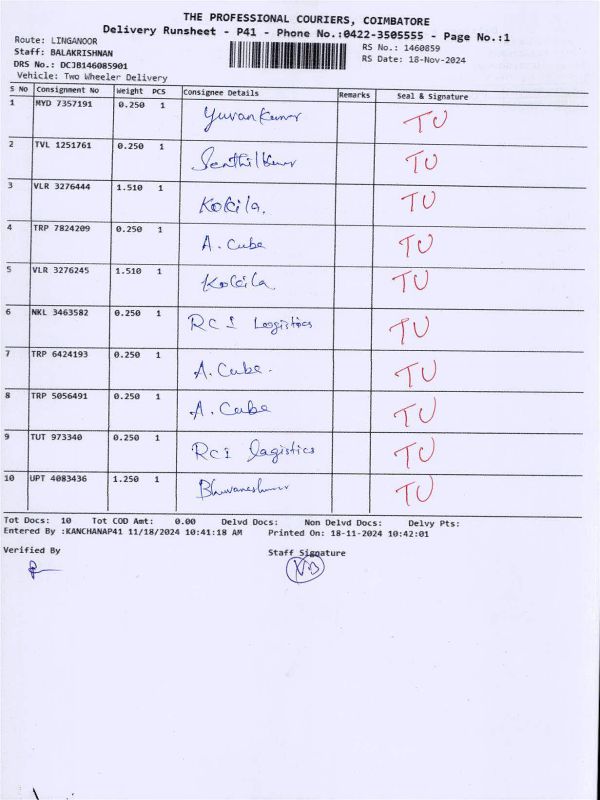 THE PROFESSIONAL COURIERS, COIMBATORE
Delivery Runsheet - P41 - Phone No.:0422-3505555 - Page No.:1
Route: LINGANOOR
RS No.: 1460859
Staff: BALAKRISHNAN
RS Date: 18-Nov-2024
DRS No.: DCJB146085901
Vehicle: Two Wheeler Delivery
S No Consignment No Weight PCS Consignee Details Remarks Seal & Signature
1 MYD 7357191 0.250 1 Yuvan Kumar TU
2 TVL 1251761 0.250 1 Senthil Kumar TU
3 VLR 3276444 1.510 1 Kokila. TU
4 TRP 7824209 0.250 1 A. Cube TU
5 VLR 3276245 1.510 1 Kokila. TU
6 NKL 3463582 0.250 1 RCI Logistics TU
7 TRP 6424193 0.250 1 A. Cube. TU
8 TRP 5056491 0.250 1 A. Cube TU
9 TUT 973340 0.250 1 RCI Logistics TU
10 UPT 4083436 1.250 1 TU
Tot Docs: 10 Tot COD Amt: 0.00 Delvd Docs: Non Delvd Docs: Delvy Pts:
Entered By :KANCHANAP41 11/18/2024 10:41:18 AM Printed On: 18-11-2024 10:42:01
Verified By
Staff Signature